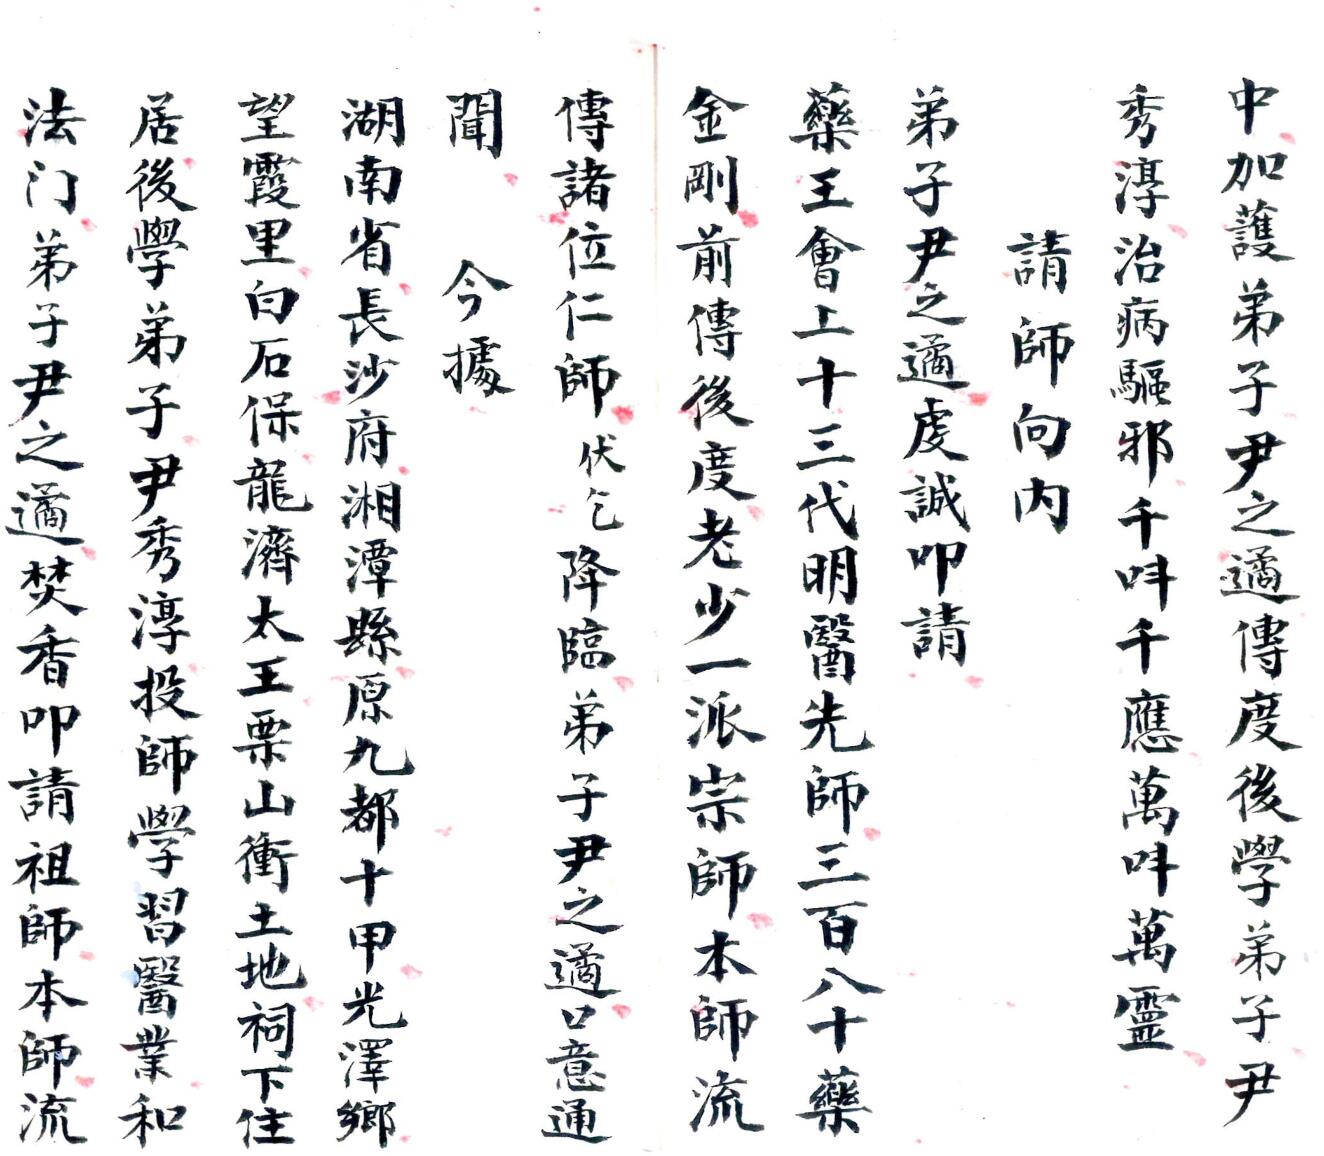 中加護弟子尹之遹傳度後學弟子尹
秀淳治病驅邪千呌千應萬呌萬靈
請師向內
弟子尹之遹虔誠叩請
藥王會上十三代明醫先師三百八十藥
金剛前傳後度老少一派宗師本師流
傳諸位仁師伏乞降臨弟子尹之遹口意通
聞　今據
湖南省長沙府湘潭縣原九都十甲光澤鄉
望霞里白石保龍濟太王栗山衝土地祠下住
居後學弟子尹秀淳投師學習醫業和
法门弟子尹之遹焚香叩請祖師本師流